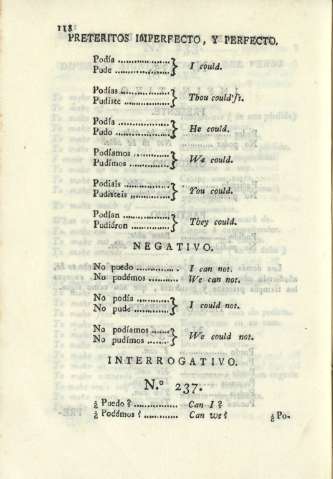 118
PRETERITOS IMPERFECTO, Y PERFECTO.
Podía ................
Pude ................ } I could.
Podías ................
Pudiste ................ } Thou could'st.
Podía ................
Pudo ................ } He could.
Podíamos ............
Pudímos ............ } We could.
Podiais ................
Pudisteis ............ } You could.
Podían ................
Pudiéron ............ } They could.
NEGATIVO.
No puedo ............. I can not.
No podémos .......... We can not.
No podía ..........
No pude .......... } I could not.
No podíamos ......
No pudímos ....... } We could not.
INTERROGATIVO.
N.º 237.
¿ Puedo ? .............. Can I ?
¿ Podémos ? .............. Can we ? ¿ Po-